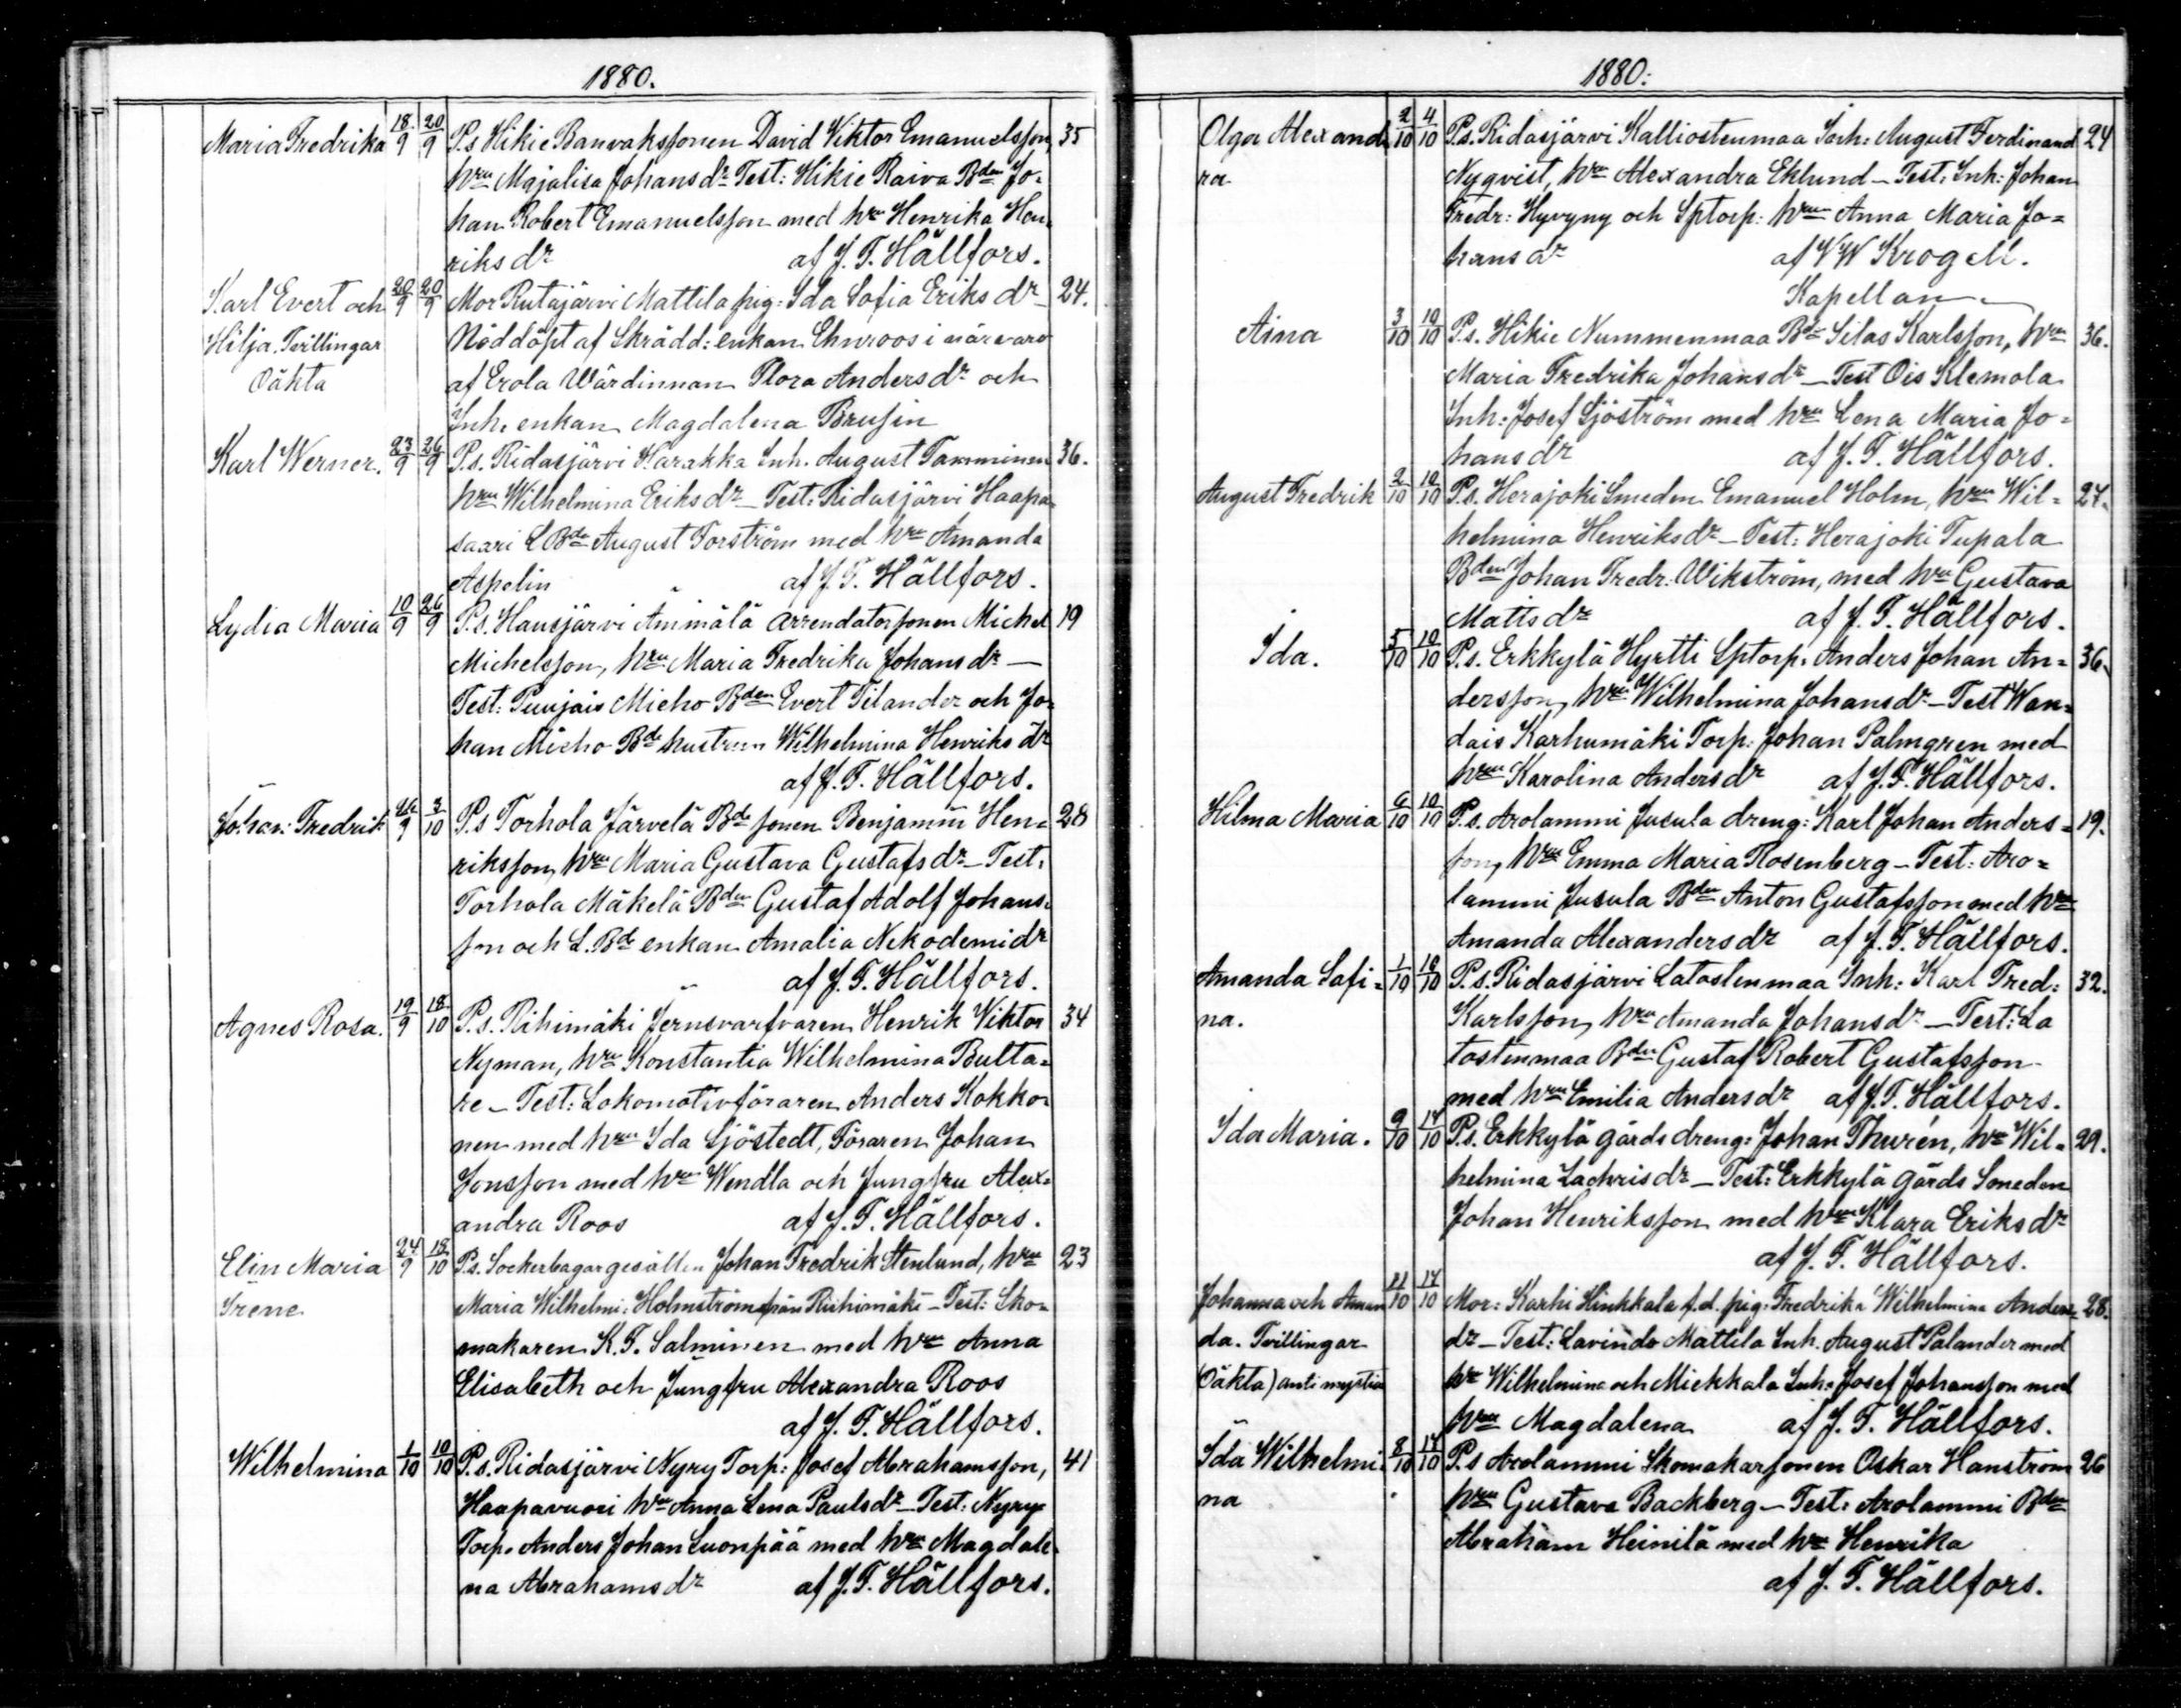 1880.
Maria Fredrika 18/9 20/9 P.s Hikie Banvaktssonen David Viktor Emanuelsson, 35
hru Majalisa Johansdr Test: Hikie Raiva Bden Jo-
han Robert Emanuelsson med hru Henrika Hen-
riksdr af J. F. Hällfors.
Karl Evert och 20/9 20/9 Mor Rutajärvi Mattila pig: Ida Sofia Eriksdr 24.
Hilja. Tvillingar Nöddöpt af Skrädd: enkan Ehnroos i närvaro
Oäkta af Erola Wärdinnan Flora Andersdr och
Inh. enkan Magdalena Brusin
Karl Werner. 23/9 26/9 P.s. Ridasjärvi Harakka Inh. August Tamminen 36.
hru Wilhelmina Eriksdr – Test: Ridasjärvi Haapa-
saari LBde August Forström med hru Amanda
Aspelin af J. F. Hällfors.
Lydia Maria 10/9 26/9 P.s. Hausjärvi Ämmälä Arrendatorsonen Michel 19
Michelsson, hru Maria Fredrika Johansdr –
Test: Puujais Micho Bden Evert Tilander och Jo-
han Micho Bde hustrun Wilhelmina Henriksdr
af J. F. Hällfors.
Johan Fredrik 26/9 3/10 P.s Torhola Järvelä Bde sonen Benjamin Hen- 28
riksson, hru Maria Gustava Gustafsdr – Test:
Torhola Mäkelä Bden Gustaf Adolf Johans-
son och L. Bde enkan Amalia Nekodemidr
af J. F. Hällfors.
Agnes Rosa. 19/9 18/10 P.s. Rihimäki Jernsvarfvaren Henrik Viktor 34
Nyman, hru Konstantia Wilhelmina Bulta-
re – Test: Lokomotivföraren Anders Kokko-
nen med hru Ida Sjöstedt, Föraren Johan
Jonsson med hru Wendla och Jungfru Alex-
andra Roos af J. F. Hällfors.
Elin Maria 24/9 18/10 P.s. Sockerbagargesällen Johan Fredrik Stenlund, hru 23
Irene Maria Wilhelmi: Holmström från Riihimäki – Test: Sko-
makaren K. F. Salminen med hru Anna
Elisabeth och Jungfru Alexandra Roos
af J. F. Hällfors.
Wilhelmina 1/10 10/10 P.s. Ridasjärvi Nyry Torp: Josef Abrahamsson, 41
Haapavuori hru Anna Lena Paulsdr – Test: Nyry
Torp. Anders Johan Luonpää med hru Magdale-
na Abrahamsdr af J. F. Hällfors.
1880.
Olga Alexand- 2/10 4/10 P.s. Ridasjärvi Kalliostenmaa Inh: August Ferdinand 24
ra Nyqvist, hru Alexandra Eklund – Test: Inh: Johan
Fredr: Hyvyny och Sptorp: hrun Anna Maria Jo-
hansdr af V W Krogell.
Kapellan
Aina 3/10 10/10 P.s. Hikie Nummenmaa Bde Silas Karlsson, hru 36.
Maria Fredrika Johansdr – Test Ois Klemola
Inh: Josef Sjöström med hru Lena Maria Jo-
hansdr af J. F. Hällfors.
August Fredrik 2/10 10/10 P.s. Herajoki Smeden Emanuel Holm, hru Wil- 27.
helmina Henriksdr – Test: Herajoki Tupala
Bden Johan Fredr: Wikström, med hru Gustava
Mattsdr af J. F. Hällfors.
Ida. 5/10 10/10 P.s. Erkkylä Hyrtti Sptorp: Anders Johan An- 36.
dersson, hru Wilhelmina Johansdr – Test Wan-
dais Karhumäki Torp: Johan Palmgren med
hru Karolina Andersdr af J. F. Hällfors.
Hilma Maria 6/10 10/10 P.s. Arolammi Jusula dreng: Karl Johan Anders- 19.
son, hru Emma Maria Rosenberg – Test: Aro-
lammi Jusula Bden Anton Gustafsson med hru
Amanda Alexandersdr af J. F. Hällfors.
Amanda Safi- 1/10 10/10 P.s. Ridasjärvi Latostenmaa Inh: Karl Fred: 32.
na. Karlsson, hru Amanda Johansdr – Test: La
tostenmaa Bden Gustaf Robert Gustafsson
med hru Emilia Andersdr af J. F. Hällfors.
Ida Maria. 9/10 17/10 P.s. Erkkylä gårds dreng: Johan Thurén, hru Wil- 29.
helmina Zachrisdr – Test: Erkkylä Gårds Smeden
Johan Henriksson med hrun Klara Eriksdr
af J. F. Hällfors.
Johanna och Aman 11/10 17/10 Mor: Karhi Hinkkala f.d. pig: Fredrika Wilhelmina Anders- 28.
da. Tvillingar dr – Test: Lavindo Mattila Inh. August Palander med
(Oäkta) hru Wilhelmina och Miekkala Inh: Josef Johansson med
hru Magdalena af J. F. Hällfors.
Ida Wilhelmi- 8/10 17/10 P.s Arolammi Skomakarsonen Oskar Hanström 26
na hru Gustava Backberg – Test: Arolammi Bden
Abraham Heinilä med hru Henrika
af J. F. Hällfors.